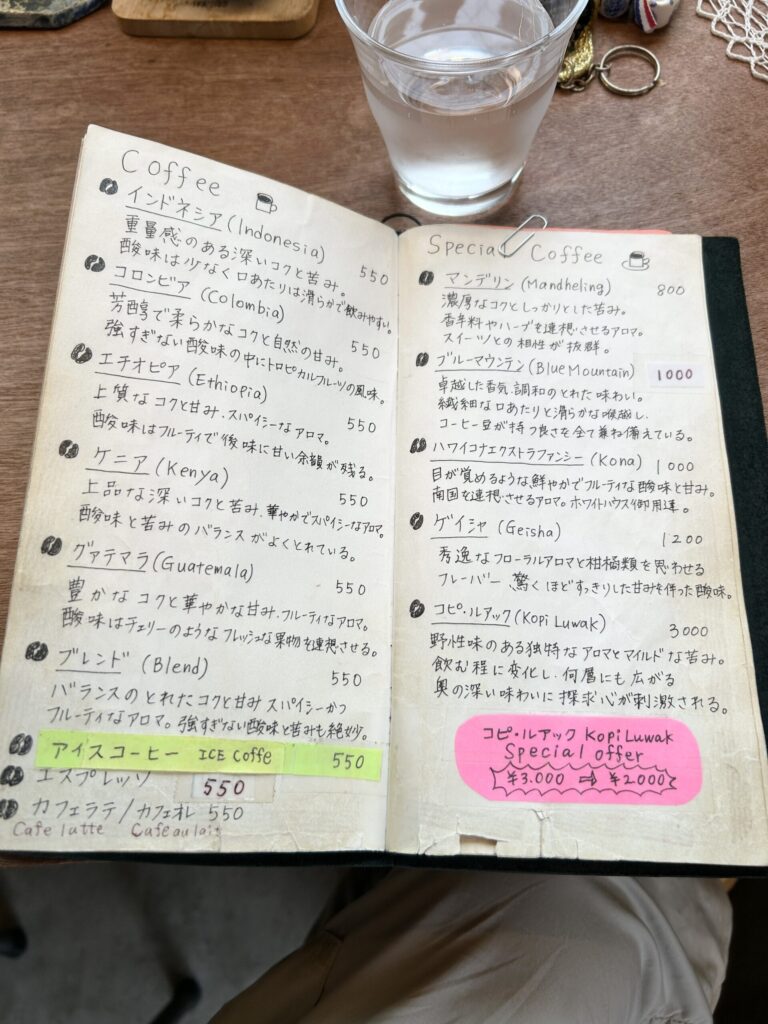 Coffee
インドネシア (Indonesia)
重量感のある深いコクと苦み。 550
酸味は少なく口あたりは滑らかで飲みやすい。
コロンビア (Colombia)
芳醇で柔らかなコクと自然の甘み。 550
強すぎない酸味の中にトロピカルフルーツの風味。
エチオピア (Ethiopia)
上質なコクと甘み.スパイシーなアロマ。 550
酸味はフルーティで後味に甘い余韻が残る。
ケニア (Kenya)
上品な深いコクと苦み.華やかでスパイシーなアロマ。 550
酸味と苦みのバランスがよくとれている。
グァテマラ (Guatemala)
豊かなコクと華やかな甘み.フルーティなアロマ。 550
酸味はチェリーのようなフレッシュな果物を連想させる。
ブレンド (Blend) 550
バランスのとれたコクと甘み スパイシーかつ
フルーティなアロマ。強すぎない酸味と苦みも絶妙。
アイスコーヒー ICE Coffe 550
エスプレッソ 550
カフェラテ/カフェオレ 550
Cafe latte Cafe au lait
Special Coffee
マンデリン (Mandheling) 800
濃厚なコクとしっかりとした苦み。
香辛料やハーブを連想させるアロマ。
スイーツとの相性が抜群。
ブルーマウンテン (Blue Mountain) 1000
卓越した香気.調和のとれた味わい。
繊細な口あたりと滑らかな喉越し.
コーヒー豆が持つ良さを全て兼ね備えている。
ハワイコナエクストラファンシー (Kona) 1000
目が覚めるような鮮やかでフルーティな酸味と甘み。
南国を連想させるアロマ。ホワイトハウス御用達。
ゲイシャ (Geisha) 1200
秀逸なフローラルアロマと柑橘類を思わせる
フレーバー 驚くほどすっきりした甘みを伴った酸味。
コピ・ルアック (Kopi Luwak) 3000
野性味のある独特なアロマとマイルドな苦み。
飲む程に変化し.何層にも広がる
奥の深い味わいに探求心が刺激される。
コピ・ルアック Kopi Luwak
Special offer
¥3.000 ⇒ ¥2000